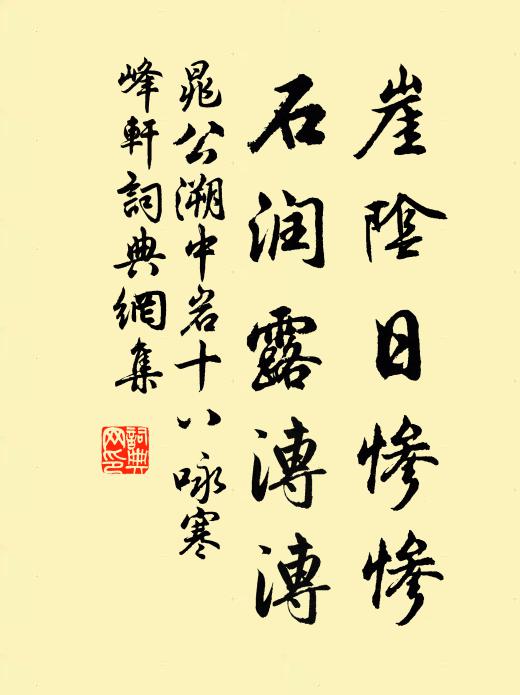 崖陰日慘慘
石润露溥溥
晁公溯中岩十八咏寒
峰軒詞典網集
詞典
网印